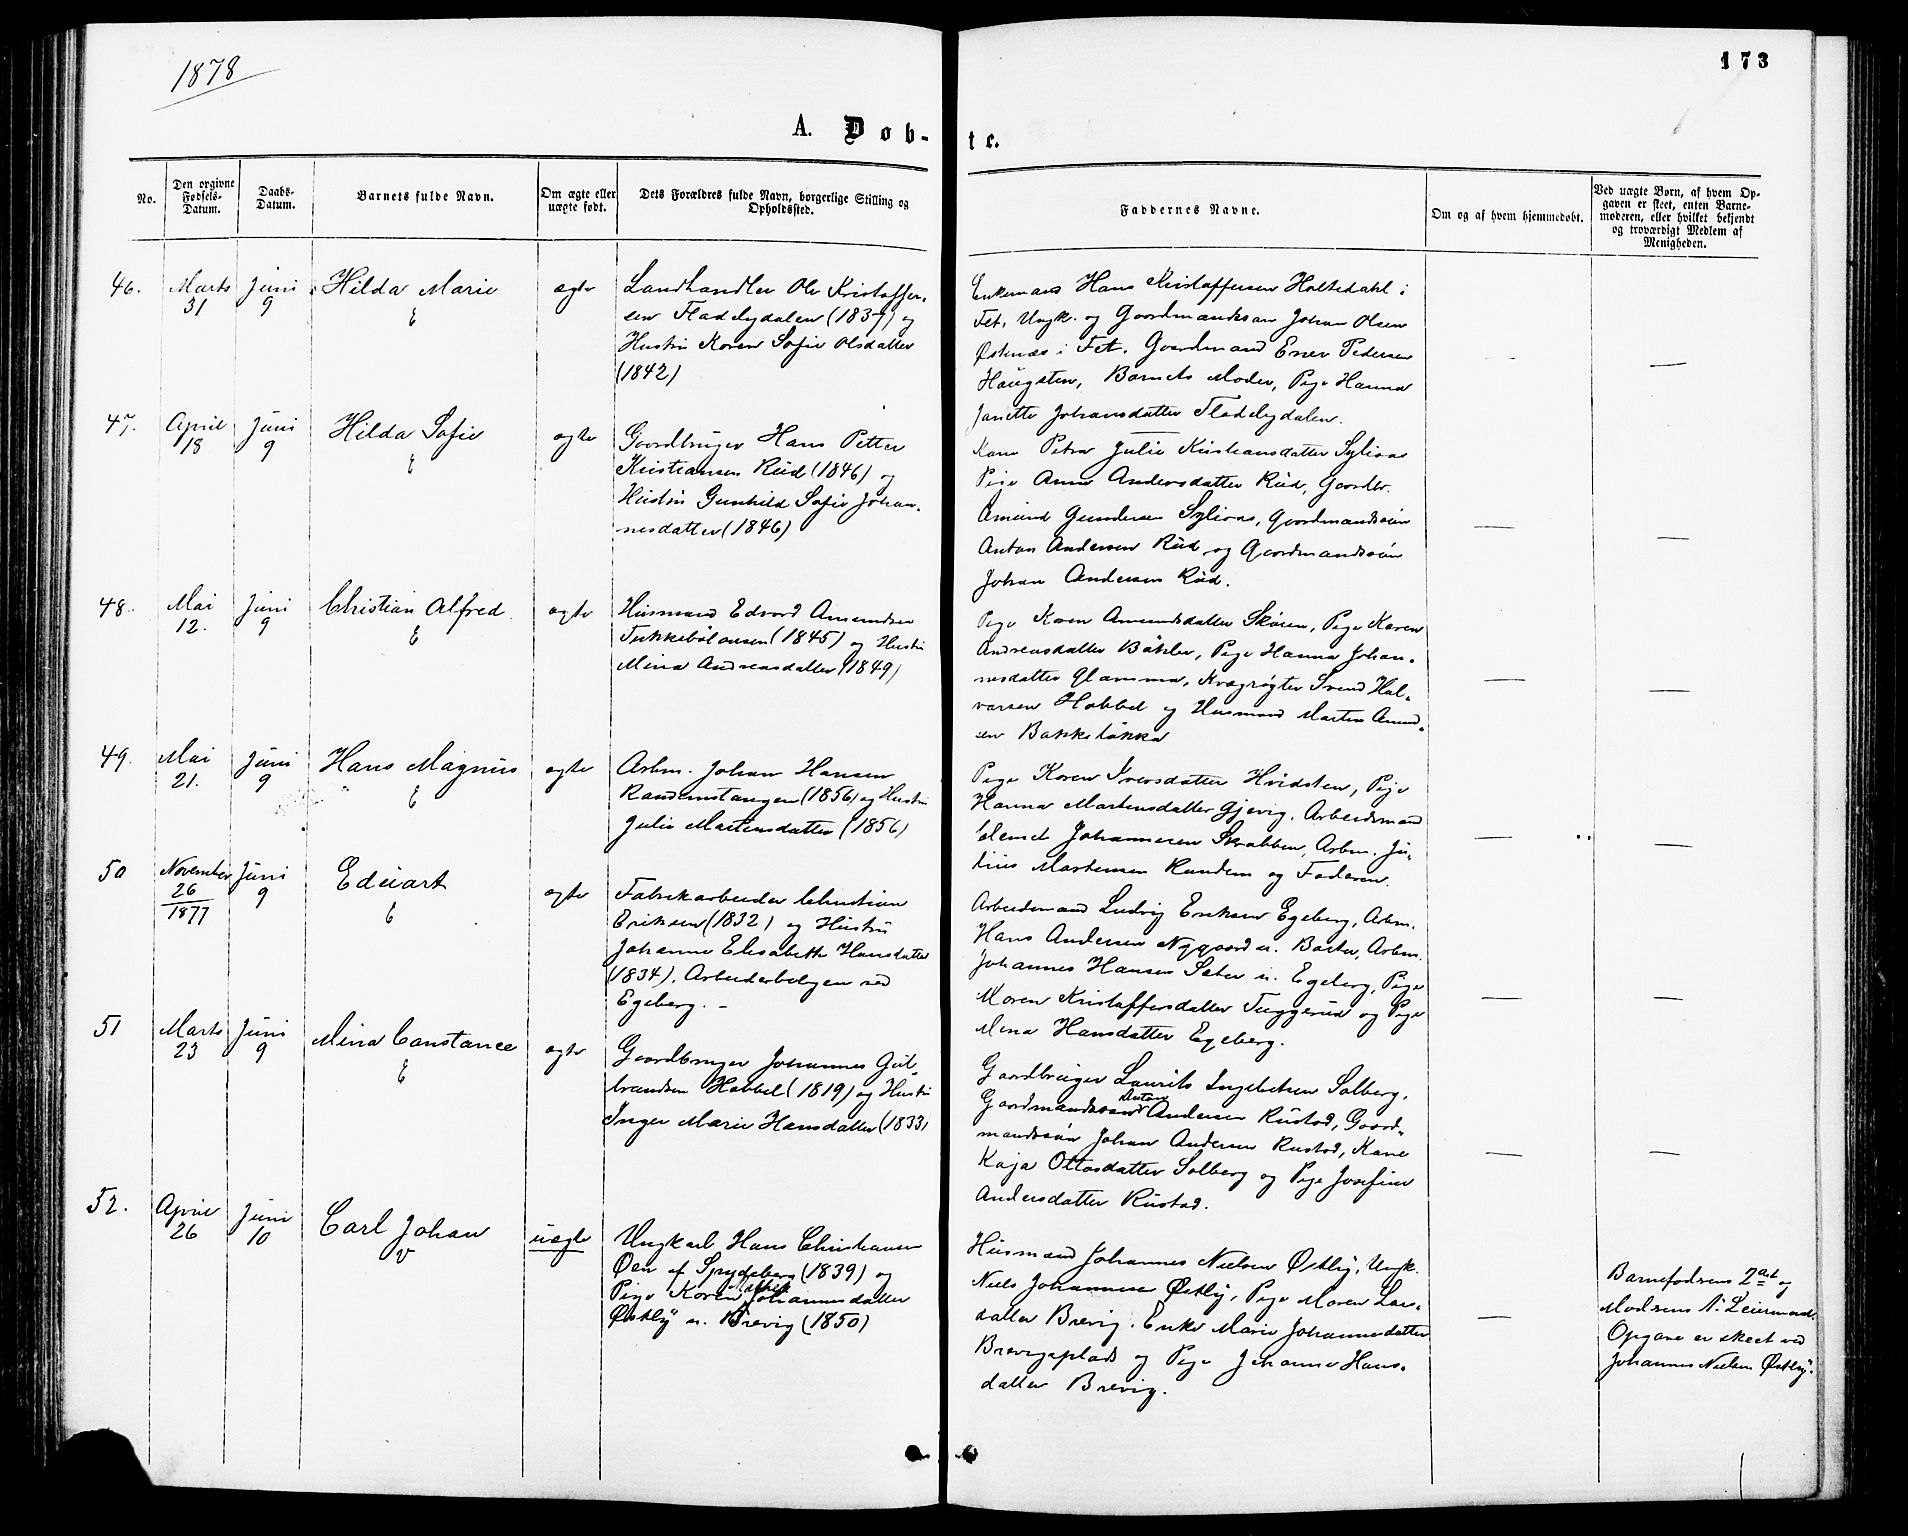 1878
173
A. Døb-
te.
No.
Den opgivne Fødsels-Datum.
Daabs-Datum.
Barnets fulde Navn.
Om ægte eller uægte født.
Dets Forældres fulde Navn, borgerlige Stilling og Opholdssted.
Faddernes Navne.
Om og af hvem hjemmedøbt.
Ved uægte Børn, af hvem Op-
gaven er skeet, enten Barne-
moderen, eller hvilket bekjendt
og troværdigt Medlem af
Menigheden.
46.
Marts
31
Juni
9
Hilda Marie
E
ægte
Landhandler Ole Kristoffer-
sen Fladebydalen (1837) og
Hustru Karen Sofie Olsdatter
(1842)
Enkemand Hans Kristoffersen Holtedahl i
Fet, Ungk. og Gaardmandssøn Johan Olsen
Østenæs i Fet. Gaardmand Ener Pedersen
Haugsten, Barnets Moder, Pige Hanna
Janette Johansdatter Fladebydalen.
47.
April
18
Juni
9
Hilda Sofie
E
ægte
Gaardbruger Hans Petter
Kristiansen Rud (1846) og
Hustru Gunhild Sofie Johan-
nesdatter (1846)
Kone Petra Julie Kristiansdatter Sylivas
Pige Anne Andersdatter Rud, Gaardbr.
Amund Gundersen Sylivas, Gaardmandssøn
Anton Andersen Rud og Gaardmandssøn
Johan Andersen Rud.
48.
Mai
12.
Juni
9
Christian Alfred
E
ægte
Husmand Edvard Amundsen
(1845) og Hustru
Mina Andreasdatter (1849)
Pige Karen Amundsdatter Skøien, Pige Karen
Andreasdatter Bøhler, Pige Hanna Johan-
nesdatter Glamma, Kvægrøgter Svend Hal-
varsen Hobbel og Husmand Martin Amund-
sen Bakkeløkka
49.
Mai
21.
Juni
9
Hans Magnus
E
ægte
Arbm. Johan Hansen
Randemstangen (1856) og Hustru
Julie Martensdatter (1856)
Pige Karen Iversdatter Hvidsten, Pige
Hanna Martensdatter Gjevig, Arbeidsmand
Clemet Johannesen Skrabben, Arbm. Ju-
lius Martensen Randem og Faderen.
50
November
26
1877
Juni
9
Eduart
E
ægte
Fabrikarbeider Christian
Eriksen (1832) og Hustru
Johanne Elisabeth Hansdatter
(1834). Arbeiderboligen ved
Egeberg. -
Arbeidsmand Ludvig Eriksen Egeberg, Arbm.
Hans Andersen Nygaard u. Baster, Arbm.
Johannes Hansen Sæter u. Egeberg, Pige
Maren Kristoffersdatter Tuggerud og Pige
Mina Hansdatter Egeberg.
51
Marts
23
Juni
9
Mina Constance
E
ægte
Gaardbruger Johannes Gul-
brandsen Hobbel (1819) og Hustru
Inger Marie Hansdatter (1833)
Gaardbruger Laurits Ingebretsen Solberg,
Gaardmandssøn Anton Andersen Rustad, Gaard-
mandssøn Johan Andersen Rustad, Kone
Kaja Ottosdatter Solberg og Pige Josefine
Andersdatter Rustad.
52.
April
26
Juni
10
Carl Johan
V
uægte
Ungkarl Hans Christiansen
Øen af Spydeberg (1839) og
Pige Karen Johannesdatter
Østby u. Brevig (1850)
Husmand Johannes Nielsen Østby, Ungk.
Niels Johannesen Østby, Pige Maren Lars-
datter Brevig, Enke Marie Johannesdatter
Brevigsplads og Pige Johanne Hans-
datter Brevig.
Barnefaderens 2det og
Moderens 1ste Leiermaal.
Opgave er skeet ved
Johannes Nielsen Østby.